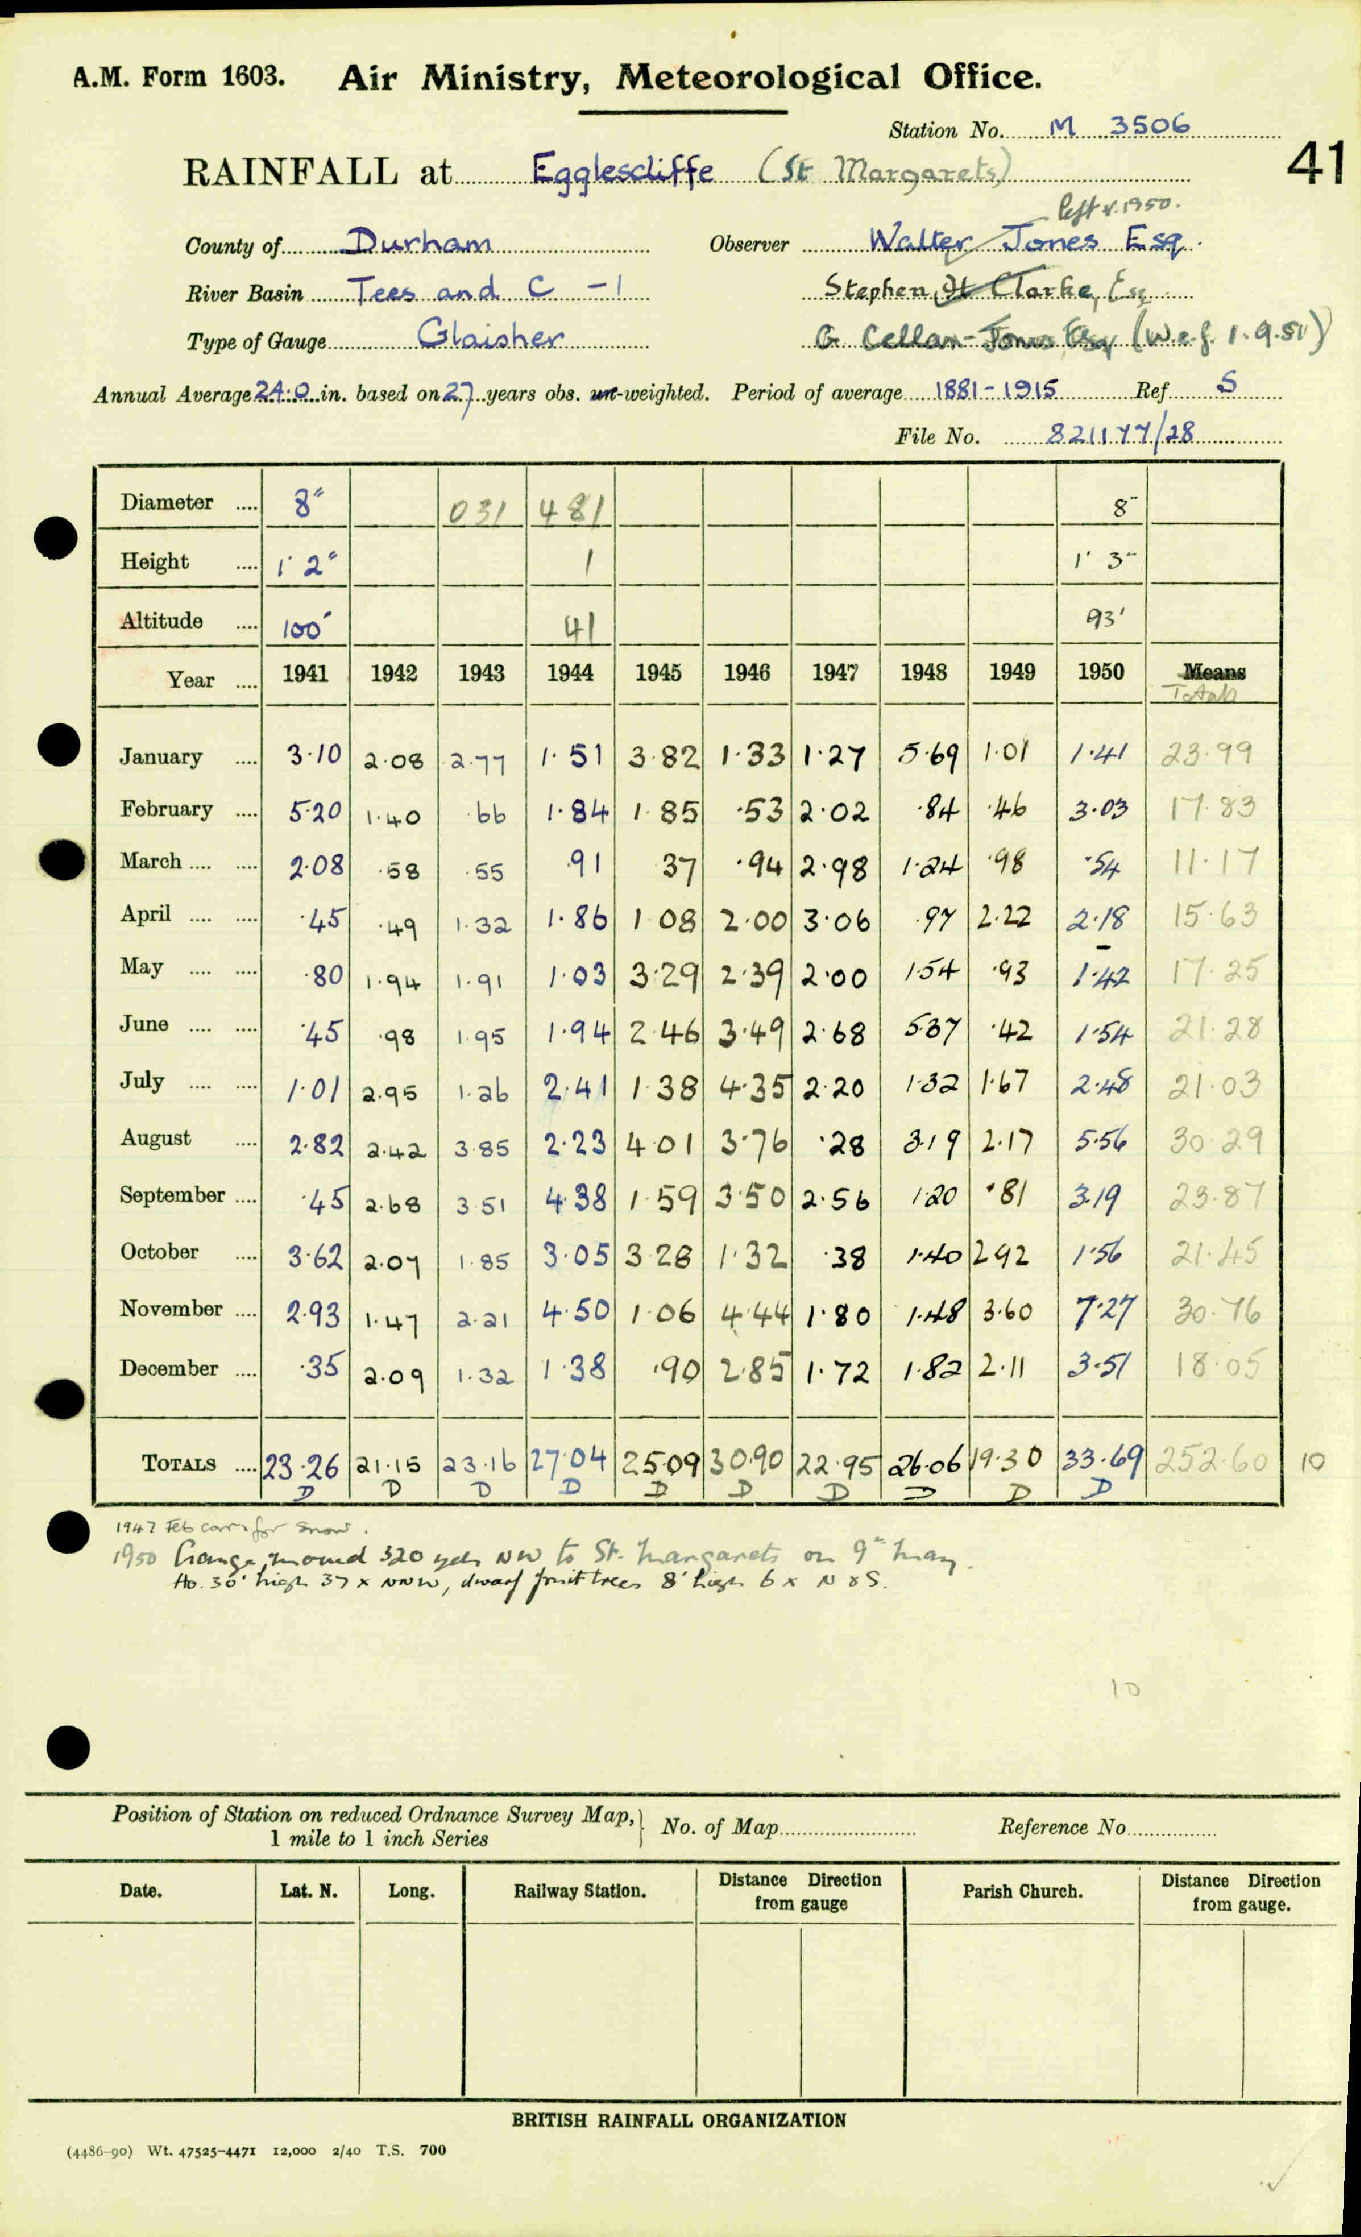 A.M. Form 1603. Air Ministry, Meteorological Office.
Station No. M 3506
41
RAINFALL at Egglescliffe (St Margarets)
left v. 1950.
County of Durham Observer Walter Jones Esq.
River Basin Tees and C -1 Stephen H Clarke, Esq
Type of Gauge Glaisher G. Cellan-Jones Esq (w.e.f. 1.9.51)
Annual Average 24.0 in. based on 27 years obs. un-weighted. Period of average 1881-1915 Ref S
File No. 821177/28
Diameter .... 8" 031 481 8"
Height .... 1' 2" 1 1' 3"
Altitude .... 100' 41 93'
Year .... 1941 1942 1943 1944 1945 1946 1947 1948 1949 1950 Means
Totals
January .... 3.10 2.08 2.77 1.51 3.82 1.33 1.27 5.69 1.01 1.41 23.99
February .... 5.20 1.40 .66 1.84 1.85 .53 2.02 .84 .46 3.03 17.83
March .... .... 2.08 .58 .55 .91 37 .94 2.98 1.24 .98 .54 11.17
April .... .... .45 .49 1.32 1.86 1 08 2.00 3.06 .97 2.22 2.18 15.63
May .... .... .80 1.94 1.91 1.03 3.29 2.39 2.00 1.54 .93 1.42 17.25
June .... .... .45 .98 1.95 1.94 2.46 3.49 2.68 5.37 .42 1.54 21.28
July .... .... 1.01 2.95 1.26 2.41 1.38 4.35 2.20 1.32 1.67 2.48 21.03
August .... 2.82 2.42 3.85 2.23 4.01 3.76 .28 3.19 2.17 5.56 30.29
September .... .45 2.68 3.51 4.38 1.59 3.50 2.56 1.20 .81 3.19 23.87
October .... 3.62 2.07 1.85 3.05 3.28 1.32 .38 1.40 2.92 1.56 21.45
November .... 2.93 1.47 2.21 4.50 1.06 4.44 1.80 1.48 3.60 7.27 30.76
December .... .35 2.09 1.32 1.38 .90 2.85 1.72 1.82 2.11 3.51 18.05
TOTALS .... 23.26 21.15 23.16 27.04 25.09 30.90 22.95 26.06 19.30 33.69 252.60 10
D D D D D D D D D D
1947 Feb corr. for snow.
1950 Gauge moved 320 yds NW to St. Margarets on 9th May.
Ho. 30' high 37 x NNW, dwarf fruit trees 8' high 6 x N & S.
10
Position of Station on reduced Ordnance Survey Map,
1 mile to 1 inch Series
No. of Map Reference No.
Date. Lat. N. Long. Railway Station. Distance Direction from gauge Parish Church. Distance Direction from gauge.
BRITISH RAINFALL ORGANIZATION
(4486-90) Wt. 47525-4471 12,000 2/40 T.S. 700